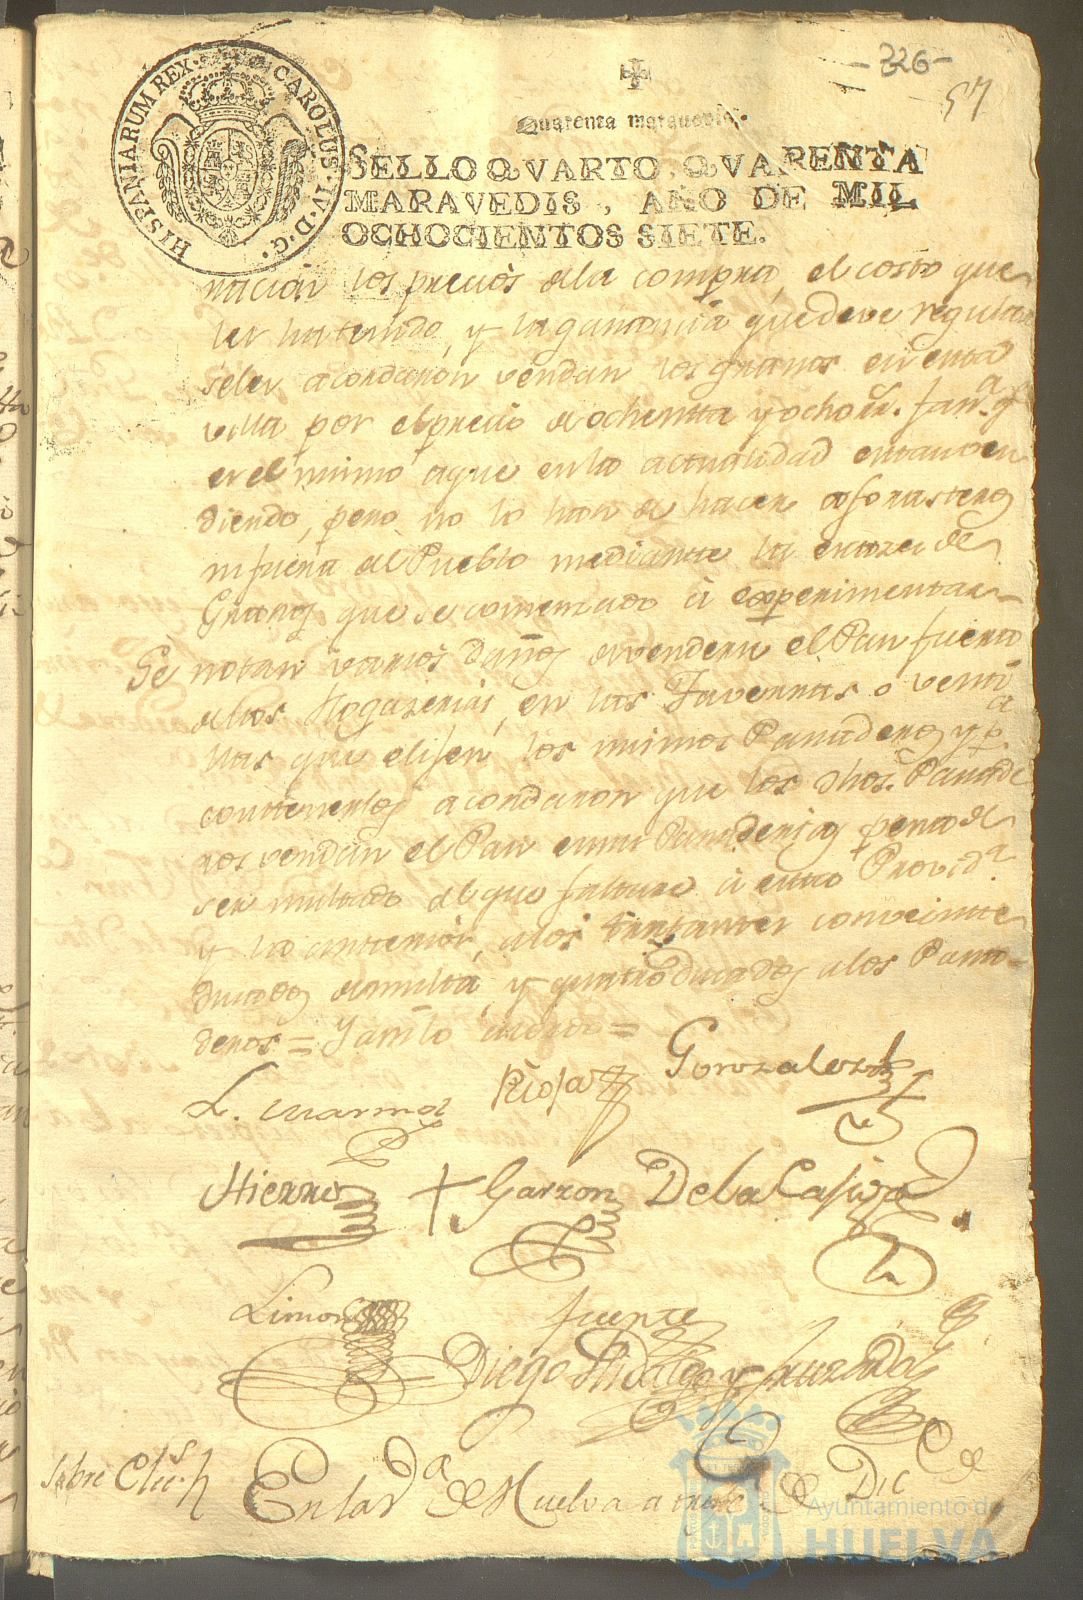 -326-
57
HISPANIARUM REX. CAROLUS. IV. D. G.
Quarenta maravedis.
SELLO QVARTO, QVARENTA
MARAVEDIS, AÑO DE MIL
OCHOCIENTOS SIETE.
nacion los precios dela compra, el costo que
les ha tenido, y la ganancia que deve regular
seles acordaron vendan los granos en esta
villa por el precio de ochenta y ocho rs. fan.a q
es el mismo aque en la actualidad estan ven
diendo, pero no lo han de hacer a forasteros
ni fuera del Pueblo mediante la escazes de
Granos que se comenzado á experimentar
Se notan varios Daños de venderse el Pan fuera
delas Hogazerias, en las Tavernas o venta
nas que elijen los mismos Panaderos y p.a
contenerlos acordaron que los dhos. Panade
ros vendan el Pan en sus Panaderias pena de
ser multado el que faltare á esta Provid.a
y la anterior, alos con veinte
ducados de multa, y quatro ducados alos Pana-
deros =
L. Marmol Rioja Gonzalez
Hierro + Garzon De la Casa
Limon fuente
Diego Hidalgo y
sobre En la V.a de Huelva a de Dic
Ayuntamiento de
HUELVA